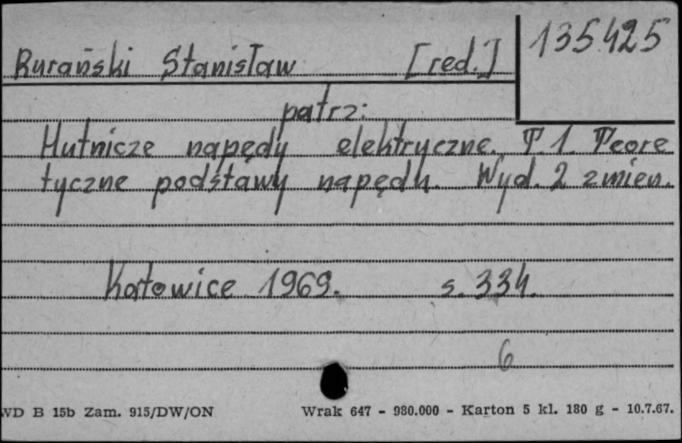 135425
Burański Stanisław [red.]
patrz:
Hutnicze napędy elektryczne. T. 1. Teore
tyczne podstawy napędu. Wyd. 2 zmien.
Katowice 1969. s. 334.
6
WD B 15b Zam. 915/DW/ON Wrak 647 - 980.000 - Karton 5 kl. 180 g - 10.7.67.